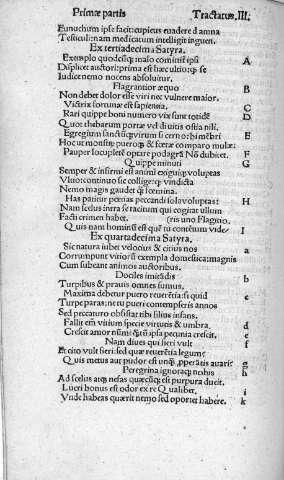 Primæ partis Tractatus. III.
Eunuchum ipse facit: cupiens euadere damna
Testiculi: nam medicatum intelligit inguen.
Ex tertiadecima Satyra.
Exemplo quodcũq; malo comittit ipsi A
Displicet auctori: prima est hæc ultio: q; se
Iudice nemo nocens absoluitur.
Flagrantior æquo B
Non debet dolor esse uiri nec vulnere maior.
Victrix fortunæ est sapientia. C
Rari quippe boni numero vix sunt totidē D
Quot thebarum portæ vel diuitis ostia nili.
Egregium sanctũq; virum si cerno: bimēbri E
Hoc monstr puero & comparo mulæ:
Pauper locupletē optare podagrā Nō dubitet. F
Quippe minuti G
Semper & infirmi est animi exiguiq; voluptas
Vltio: continuo sic collige: q vindicta
Nemo magis gaudet q̃ fœmina.
Has patitur pœnas peccandi sola voluptas: H
Nam scelus intra se tacitum qui cogitat ullum
Facti crimen habet. (ris uno Flagitio.
Quis nam hominũ est quē tu contentum vide I
Ex quartadecima Satyra.
Sic natura iubet velocius & citius nos a
Corrumpunt vitiorũ exempla domestica: magnis
Cum subeant animos auctoribus.
Dociles imitādis b
Turpibus & prauis omnes sumus.
Maxima debetur puero reuerētia: si quid c
Turpe paras: ne tu pueri contempseris annos
Sed peccaturo obsistat tibi filius infans.
Fallit em̃ vitium specie virtutis & umbra. d
Crescit amor nũmi q̃tũ ipsa pecunia crescit. e
Nam diues qui fieri vult f
Et cito vult fieri: sed quæ reuerētia legum:
Quis metus aut pudor est unq̃; pperātis auari: g
Peregrina ignotaq; nobis h
Ad scelus atq; nefas quæcũq; est purpura ducit.
Lucri bonus est odor ex re Qualibet. i
Vnde habeas quærit nemo sed oportet habere. k